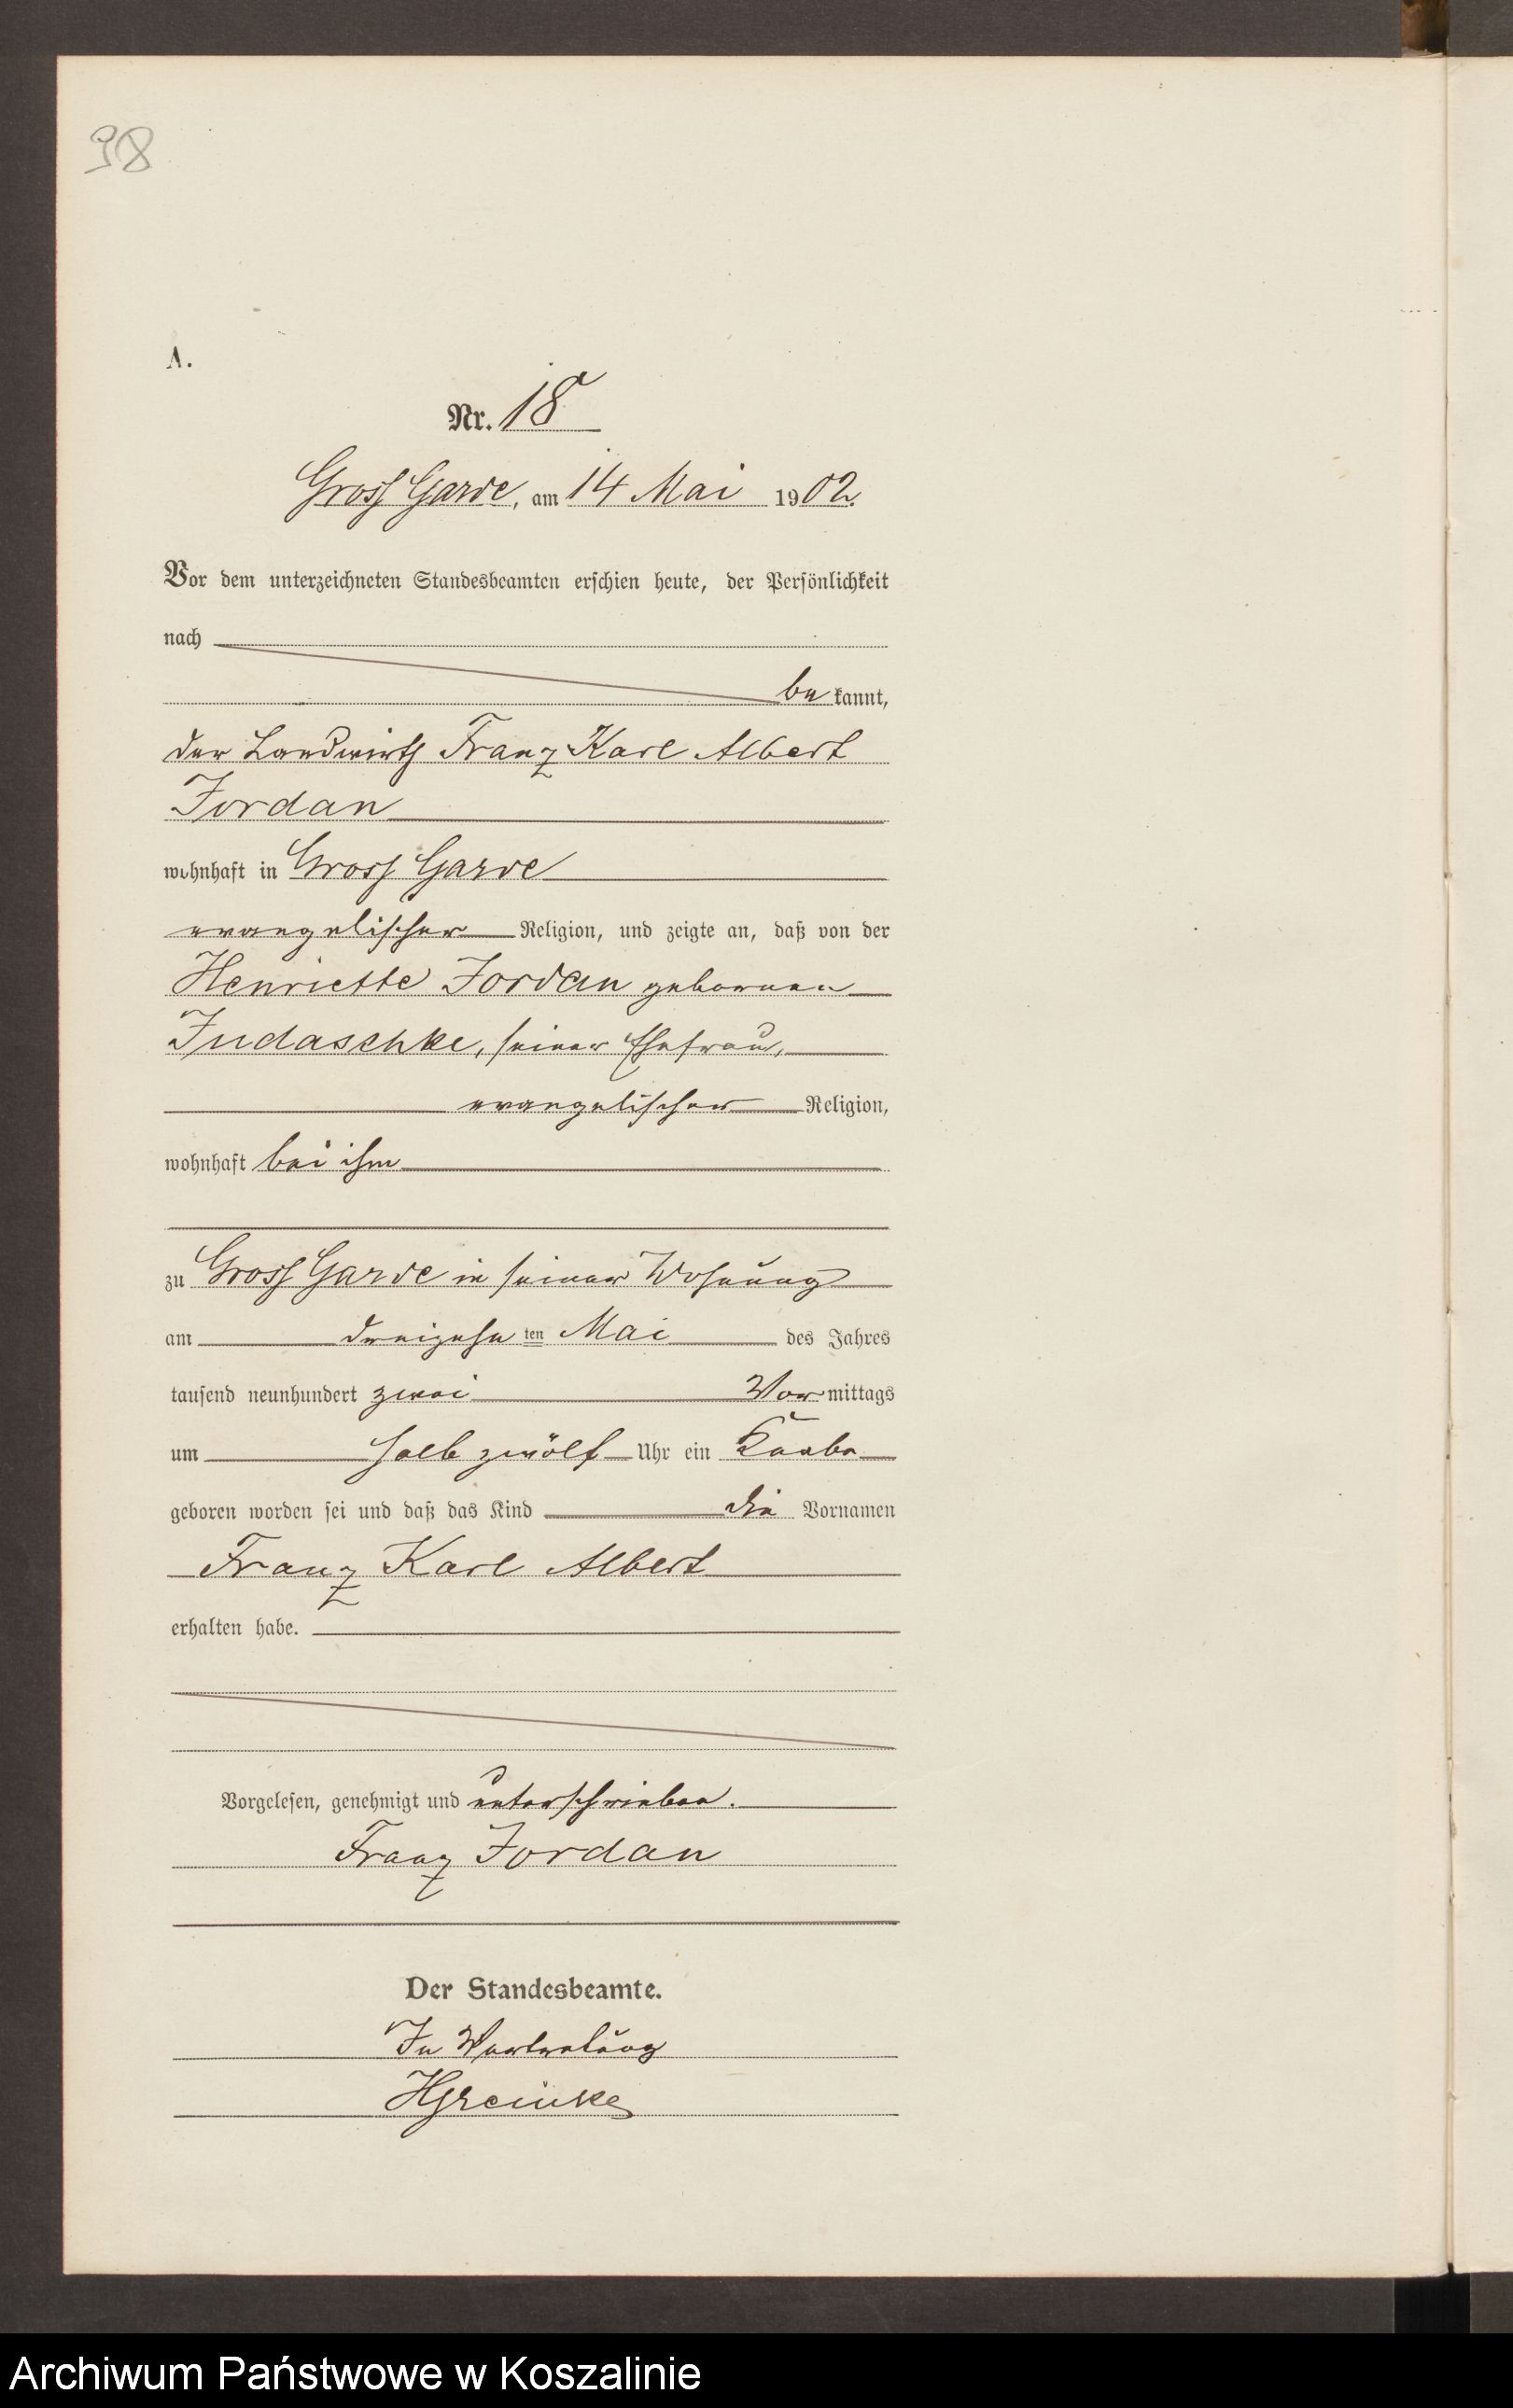 98
A.
Nr. 18
Gross Garde, am 14 Mai 1902.
Vor dem unterzeichneten Standesbeamten erschien heute, der Persönlichkeit
nach
be kannt,
der Landwirth Franz Karl Albert
Jordan
wohnhaft in Gross Garde
evangelischer Religion, und zeigte an, daß von der
Henriette Jordan gebornen
Judaschke, seiner Ehefrau,
evangelischer Religion,
wohnhaft bei ihm
zu Gross Garde in seiner Wohnung
am dreizehn ten Mai des Jahres
tausend neunhundert zwei Vor mittags
um halb zwölf Uhr ein Knabe
geboren worden sei und daß das Kind die Vornamen
Franz Karl Albert
erhalten habe.
Vorgelesen, genehmigt und unterschrieben.
Franz Jordan
Der Standesbeamte.
In Vertretung
Archiwum Państwowe w Koszalinie